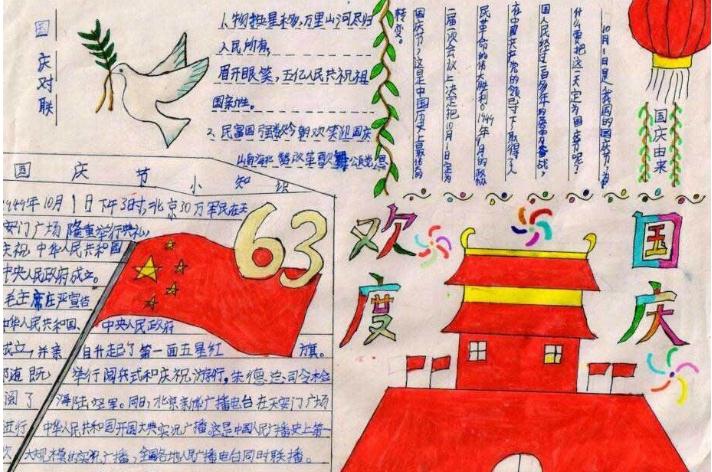 国庆对联
1、物换星移,万里山河尽归
人民所有,
眉开眼笑,五亿人民共祝祖
国亲胜。
2、民富国强数今朝欢笑迎国庆
10月1日是我国的国庆节,为
什么要把这一天定为国庆节呢?
国人民经过一百多年的英勇奋战,
在中国共产党的领导下,取得了人
民革命的伟大胜利。1949年
二届一次会议上决定把10月1日定为
国庆节,这是中国历史上最伟大的
转变。
国庆由来
国庆节小知识
1949年10月1日下午3时,北京30万军民在天
安门广场隆重举行典礼,
庆祝中华人民共和国
中央人民政府成立。
毛主席庄严宣告
中华人民共和国、中央人民政府
成立,并亲自升起了第一面五星红旗。
举行阅兵式和庆祝游行,朱德总司令检
阅了海陆空军。同时,北京新华广播电台在天安门广场
进行中华人民共和国开国大典实况广播,这是中国人民广播史上第一
次大规模的实况广播,全国各地人民广播电台同时联播。
63
欢度
国庆